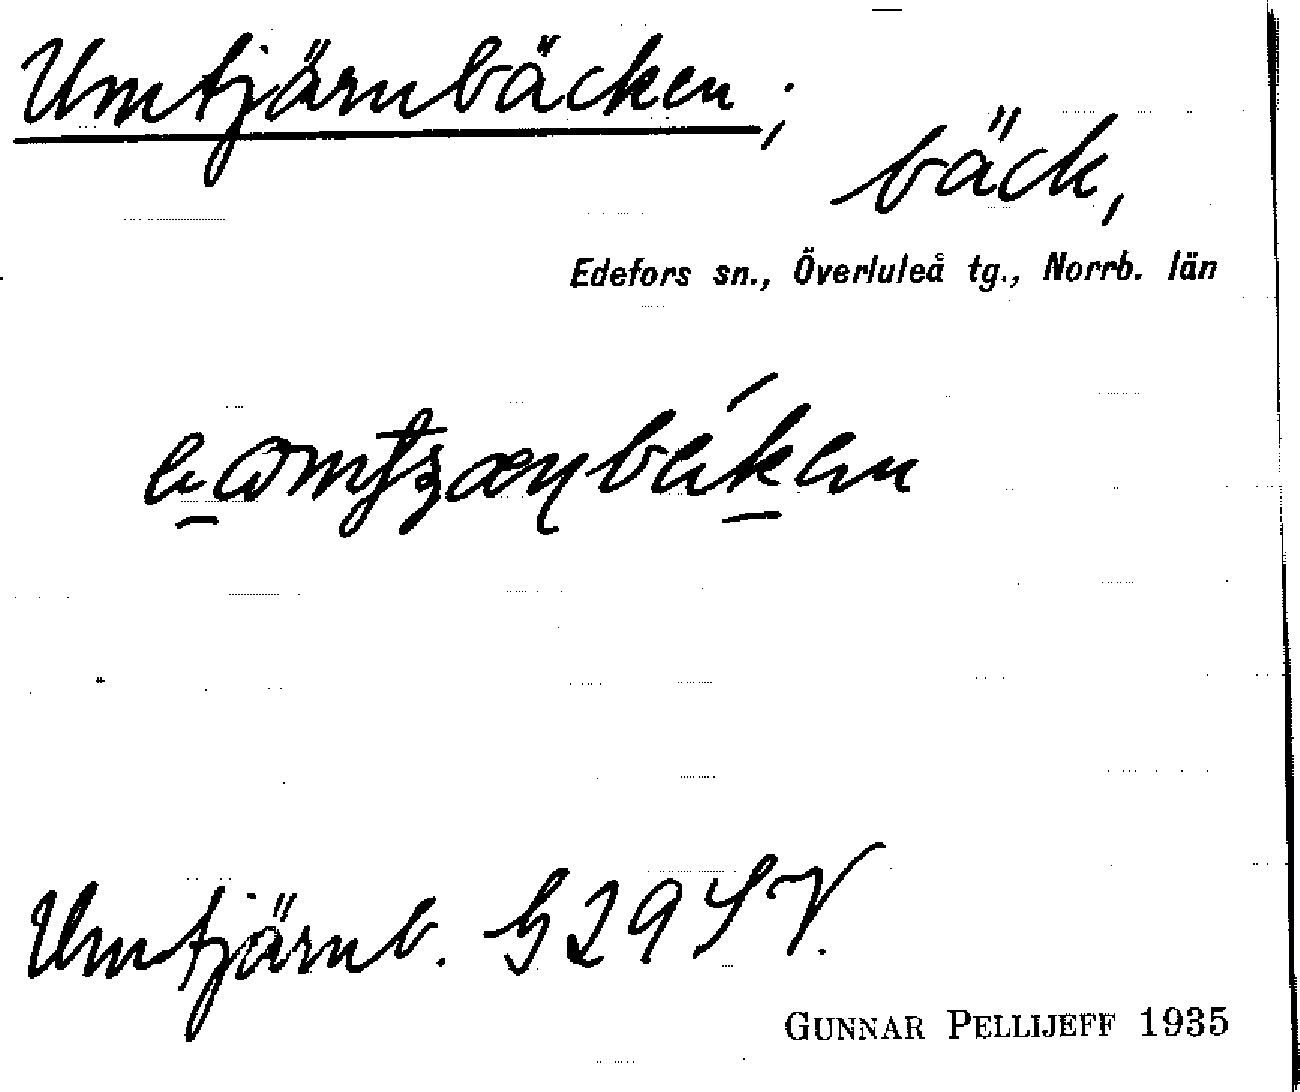 Umtjärnbäcken;
bäck,
Edefors sn., Överluleå tg., Norrb. län
Umtjärnb. G 29 SV.
GUNNAR PELLIJEFF 1935